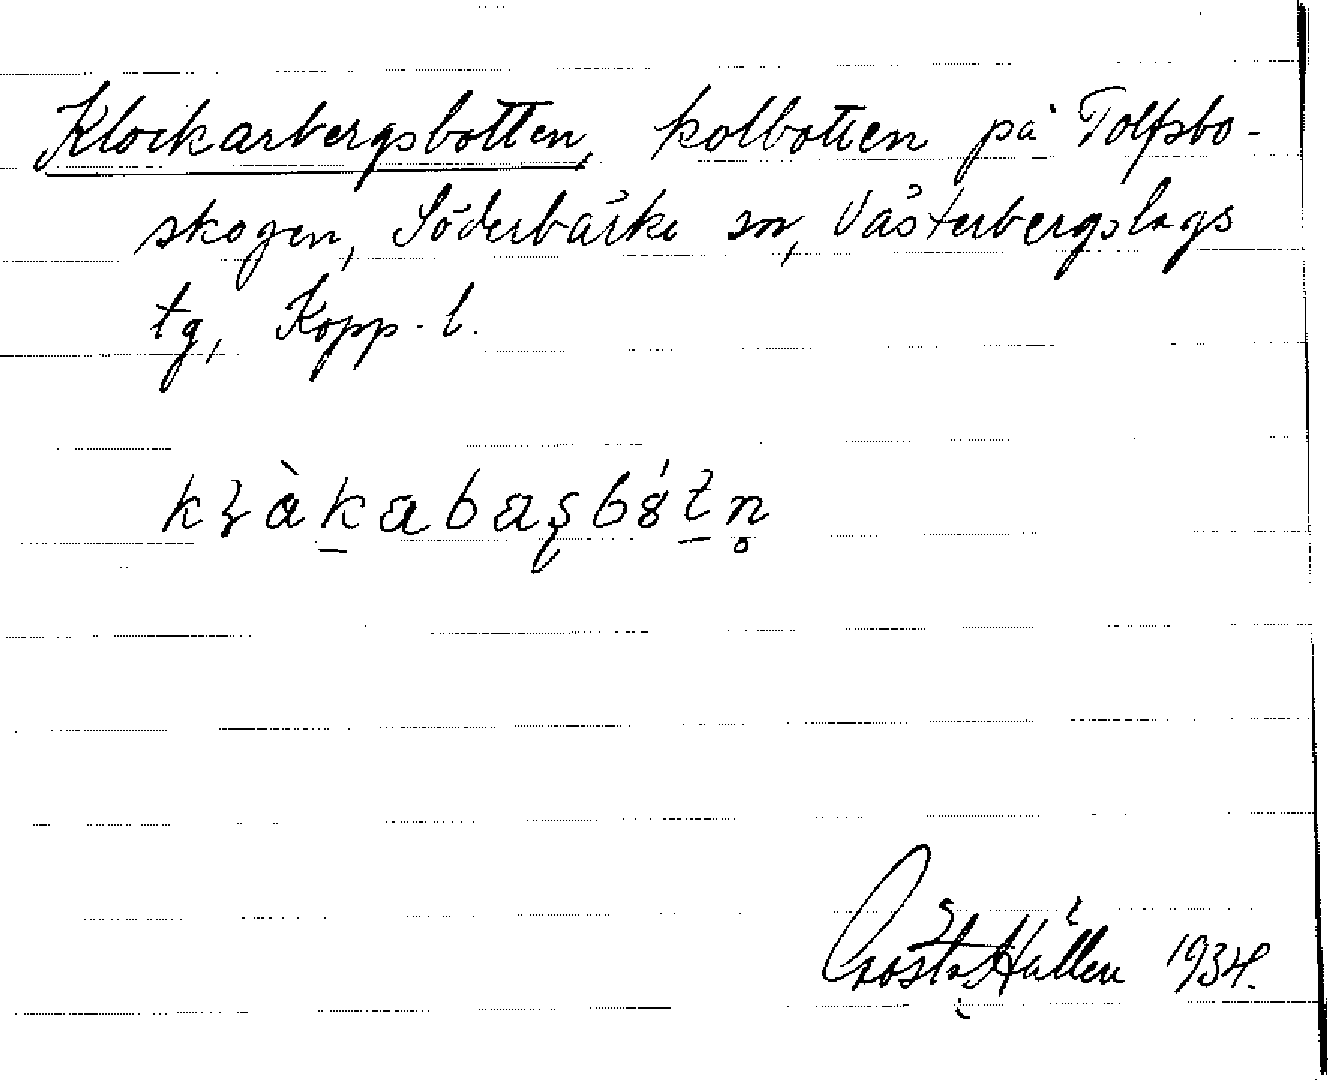 Klockarbergsbotten, kolbotten på Tolfsbo-
skogen, Söderbärke sn, Västerbergslags
tg, Kopp. l.
Gösta Hallén 1934.